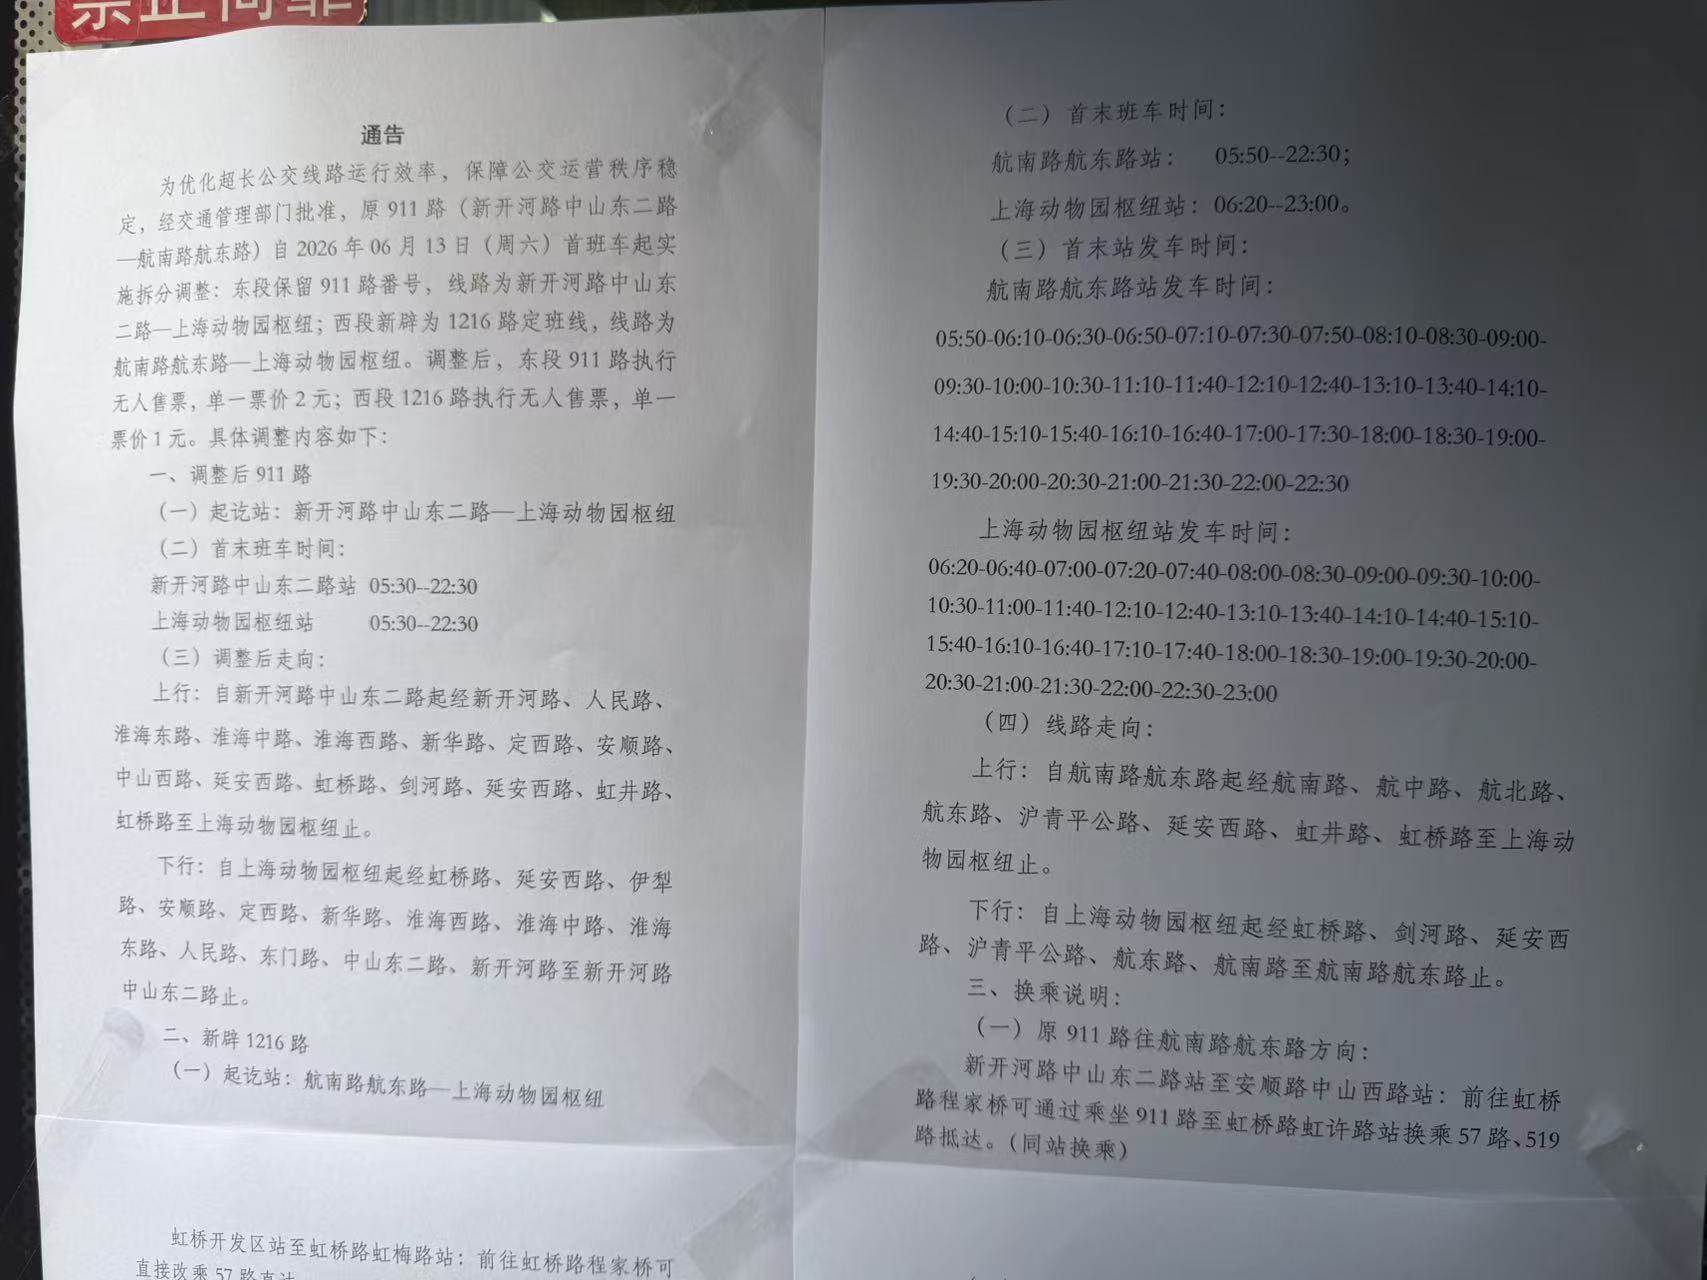 禁止倚靠
通告
为优化超长公交线路运行效率，保障公交运营秩序稳
定，经交通管理部门批准，原 911 路（新开河路中山东二路
—航南路航东路）自 2026 年 06 月 13 日（周六）首班车起实
施拆分调整：东段保留 911 路番号，线路为新开河路中山东
二路—上海动物园枢纽；西段新辟为 1216 路定班线，线路为
航南路航东路—上海动物园枢纽。调整后，东段 911 路执行
无人售票，单一票价 2 元；西段 1216 路执行无人售票，单一
票价 1 元。具体调整内容如下：
一、调整后 911 路
（一）起讫站：新开河路中山东二路—上海动物园枢纽
（二）首末班车时间：
新开河路中山东二路站 05:30--22:30
上海动物园枢纽站 05:30--22:30
（三）调整后走向：
上行：自新开河路中山东二路起经新开河路、人民路、
淮海东路、淮海中路、淮海西路、新华路、定西路、安顺路、
中山西路、延安西路、虹桥路、剑河路、延安西路、虹井路、
虹桥路至上海动物园枢纽止。
下行：自上海动物园枢纽起经虹桥路、延安西路、伊犁
路、安顺路、定西路、新华路、淮海西路、淮海中路、淮海
东路、人民路、东门路、中山东二路、新开河路至新开河路
中山东二路止。
二、新辟 1216 路
（一）起讫站：航南路航东路—上海动物园枢纽
（二）首末班车时间：
航南路航东路站： 05:50--22:30；
上海动物园枢纽站：06:20--23:00。
（三）首末站发车时间：
航南路航东路站发车时间：
05:50-06:10-06:30-06:50-07:10-07:30-07:50-08:10-08:30-09:00-
09:30-10:00-10:30-11:10-11:40-12:10-12:40-13:10-13:40-14:10-
14:40-15:10-15:40-16:10-16:40-17:00-17:30-18:00-18:30-19:00-
19:30-20:00-20:30-21:00-21:30-22:00-22:30
上海动物园枢纽站发车时间：
06:20-06:40-07:00-07:20-07:40-08:00-08:30-09:00-09:30-10:00-
10:30-11:00-11:40-12:10-12:40-13:10-13:40-14:10-14:40-15:10-
15:40-16:10-16:40-17:10-17:40-18:00-18:30-19:00-19:30-20:00-
20:30-21:00-21:30-22:00-22:30-23:00
（四）线路走向：
上行：自航南路航东路起经航南路、航中路、航北路、
航东路、沪青平公路、延安西路、虹井路、虹桥路至上海动
物园枢纽止。
下行：自上海动物园枢纽起经虹桥路、剑河路、延安西
路、沪青平公路、航东路、航南路至航南路航东路止。
三、换乘说明：
（一）原 911 路往航南路航东路方向：
新开河路中山东二路站至安顺路中山西路站：前往虹桥
路程家桥可通过乘坐 911 路至虹桥路虹许路站换乘 57 路、519
路抵达。（同站换乘）
虹桥开发区站至虹桥路虹梅路站：前往虹桥路程家桥可
直接改乘 57 路直达